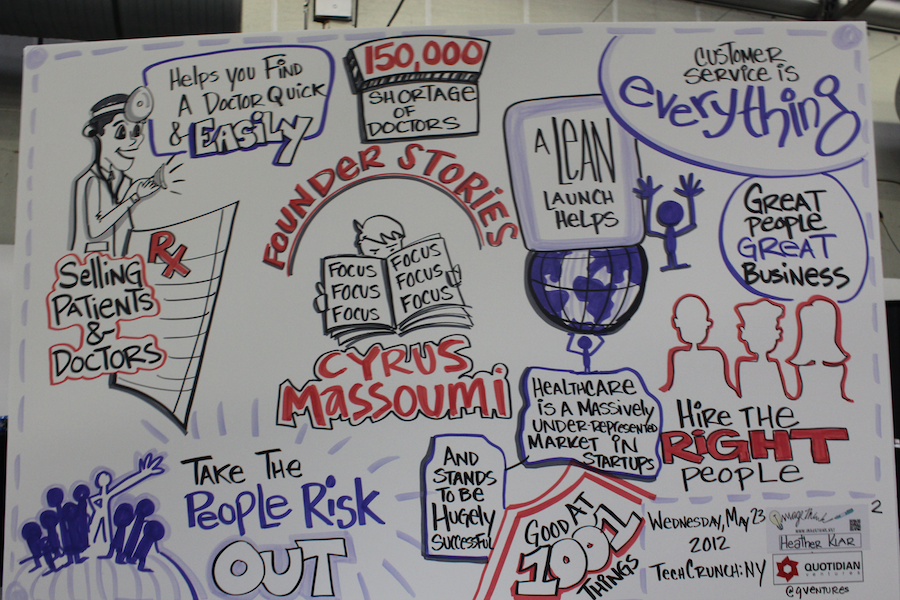 HELPS YOU FIND
A DOCTOR QUICK
& EASILY
150,000
SHORTAGE
OF
DOCTORS
CUSTOMER
SERVICE IS
everything
A LEAN
LAUNCH
HELPS
FOUNDER STORIES
FOCUS
FOCUS
FOCUS
FOCUS
FOCUS
FOCUS
CYRUS
MASSOUMI
GREAT
PEOPLE
GREAT
BUSINESS
Rx
SELLING
PATIENTS
&
DOCTORS
HEALTHCARE
IS A MASSIVELY
UNDER-REPRESENTED
MARKET IN
STARTUPS
HIRE THE
RIGHT
PEOPLE
TAKE THE
PEOPLE RISK
OUT
AND
STANDS
TO BE
HUGELY
SUCCESSFUL
GOOD AT
1001
THINGS
WEDNESDAY, MAY 23
2012
TECHCRUNCH:NY
ImageThink
Heather Klar
QUOTIDIAN
ventures
@qventures
2